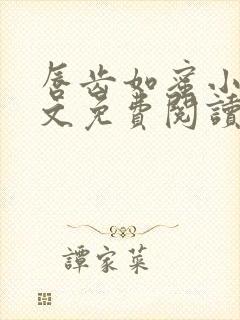 唇齿如蜜小
文免費閱讀
譚家菜